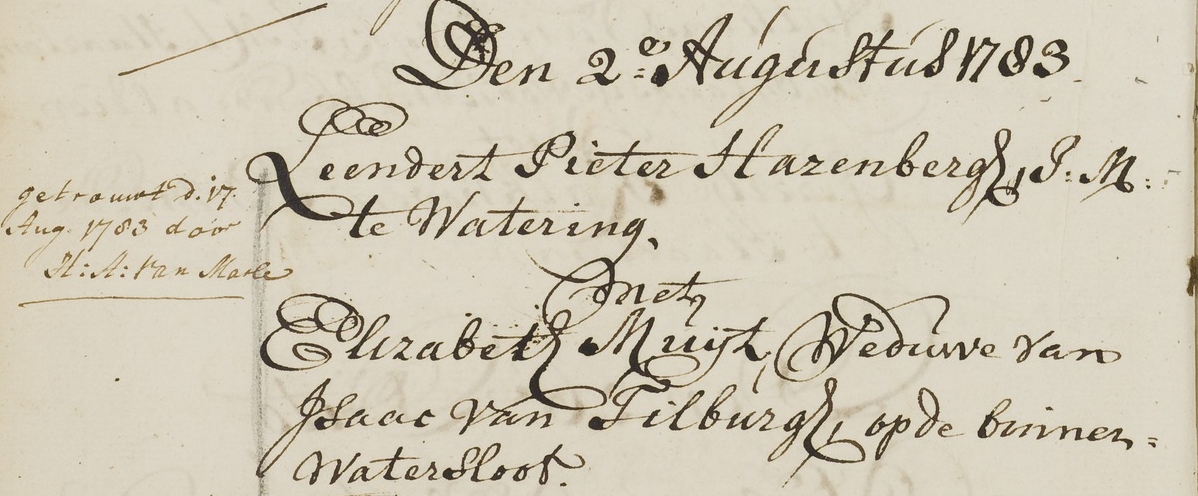 Den 2.e Augustus 1783.
Leendert Pieter Hazenberg, J: M:
te Watering,
getrouwt d. 17.
Aug. 1783 door
H: A: van Marle
met,
Elizabeth Muijt, Weduwe van
Isaac van Tilburg, op de binnen=
Watersloot.